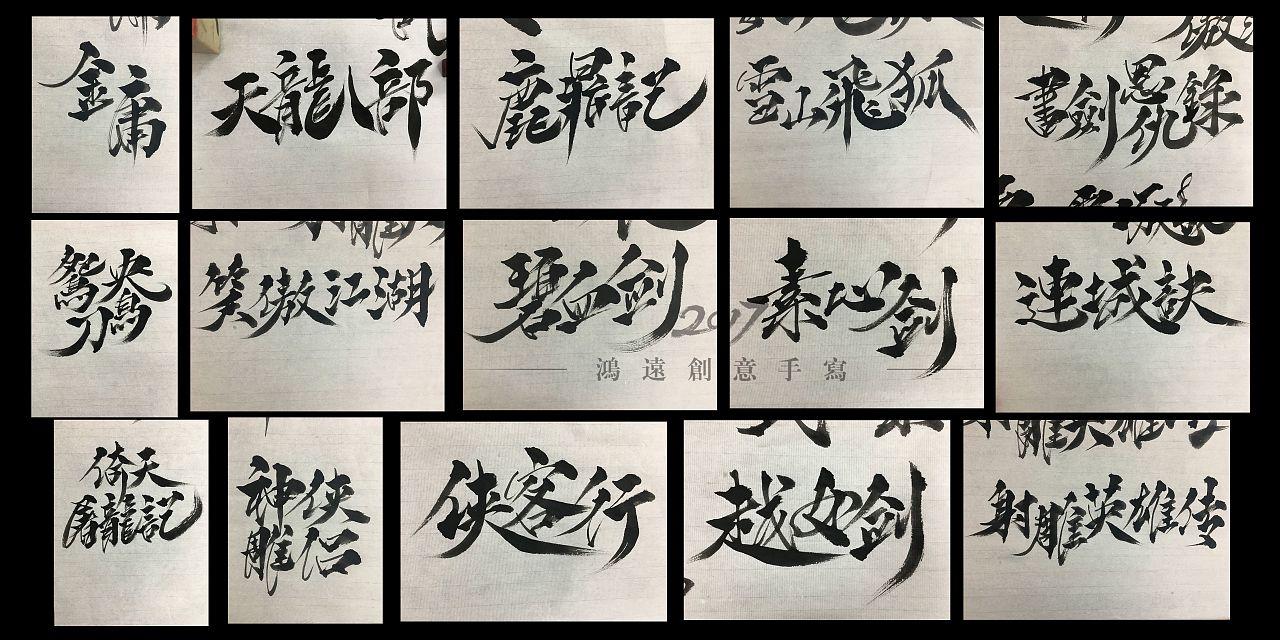 金庸
天龍八部
鹿鼎記
雪山飛狐
書劍恩仇錄
鴛鴦刀
笑傲江湖
碧血剑
素心剑
連城訣
2017
鴻遠創意手寫
倚天
屠龍記
神雕侠侣
侠客行
越女剑
射雕英雄传